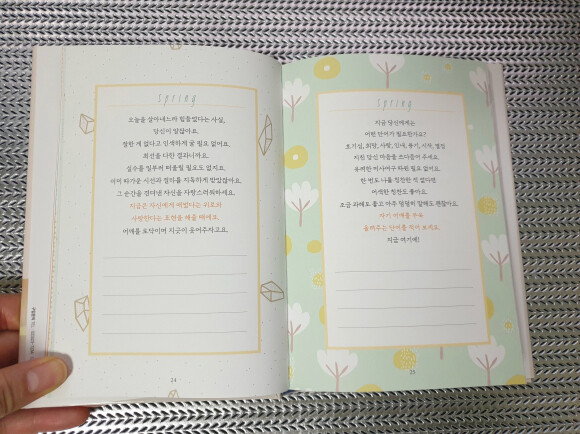 spring
오늘을 살아내느라 힘들었다는 사실,
당신이 알잖아요.
잘한 게 없다고 인색하게 굴 필요 없어요.
최선을 다한 결과니까요.
실수를 일부러 떠올릴 필요도 없지요.
이미 따가운 시선과 질타를 지독하게 받았잖아요.
그 순간을 견뎌낸 자신을 자랑스러워하세요.
지금은 자신에게 애썼다는 위로와
사랑한다는 표현을 해줄 때예요.
어깨를 토닥이며 지긋이 웃어주자고요.
24
spring
지금 당신에게는
어떤 단어가 필요한가요?
호기심, 희망, 사랑, 인내, 용기, 시작, 열정
지친 당신 마음을 쓰다듬어 주세요.
유려한 미사여구 따윈 필요 없어요.
한 번도 나를 칭찬한 적 없다면
어색한 칭찬도 좋아요.
조금 과해도 좋고 아주 덤덤히 말해도 괜찮아요.
자기 이해를 푸욱
올려주는 단어를 적어 보세요.
지금 여기에!
25